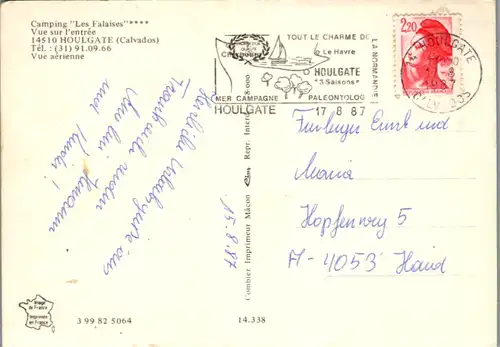 Camping "Les Falaises"****
Vue sur l'entrée
14510 HOULGATE (Calvados)
Tél. : (31) 91.09.66
Vue aérienne
TOUT LE CHARME DE
LA NORMANDIE
Le Havre
HOULGATE
"3 Saisons"
MER CAMPAGNE PALEONTOLOG
HOULGATE 17 8 87
2,20
HOULGATE
CALVADOS
Herzliche Urlaubsgrüße aus
Frankreich
und
15.8.87
Ernst und
Maria
Hopfenweg 5
A-4053 Haid
Combier Imprimeur Mâcon
Repr. Interd.
Image
de France
Imprimée
en France
3 99 82 5064
14.338